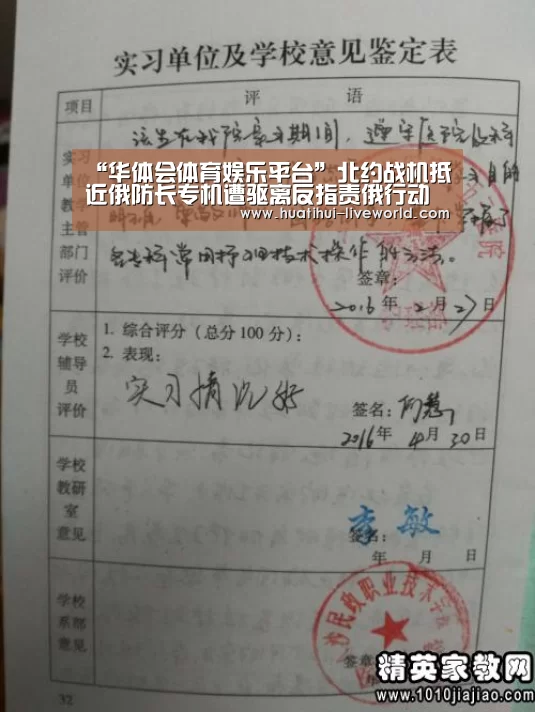 实习单位及学校意见鉴定表
项目
评 语
实习
单位
教学
主管
部门
评价
该生在我院实习期间,遵守医院
“华体会体育娱乐平台”北约战机抵
近俄防长专机遭驱离反指责俄行动
www.huatihui-liveworld.com
各专科常用护理技术操作的方法。
签章:
2016 年 2 月 27 日
学校
辅导
员
评价
1. 综合评分(总分100分):
2. 表现:
实习情况好
签名:
2016 年 4 月 30 日
学校
教研
室
意见
李敏
签名:
年 月 日
学校
系部
意见
沙民政职业技术学院
签章
精英家教网
www.1010jiajiao.com
32